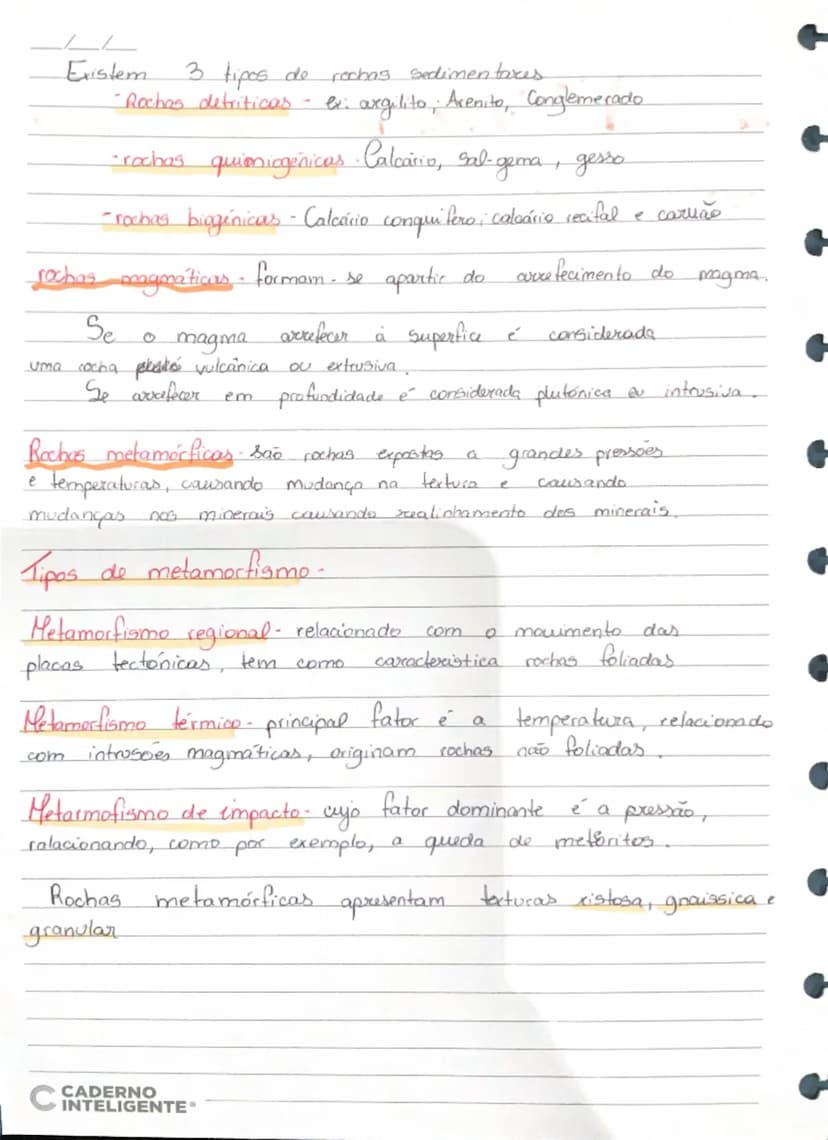 __/__/__
Existem 3 tipos de rochas sedimentares
- Rochas detríticas - ex: argilito, Arenito, Conglomerado
- rochas quimiogénicas - Calcário, sal-gema, gesso
- rochas biogénicas - Calcário conquífero, calcário recifal e carvão
rochas magmáticas - formam-se apartir do arrefecimento do magma.
Se o magma arrefecer à superfice é considerada
uma rocha vulcânica ou extrusiva.
Se arrefecer em profundidade é considerada plutónica ou intrusiva.
Rochas metamórficas - são rochas expostas a grandes pressões
e temperaturas, causando mudança na textura e causando
mudanças nos minerais causando realinhamento dos minerais.
Tipos de metamorfismo -
Metamorfismo regional - relacionado com o movimento das
placas tectónicas, tem como característica rochas foliadas
Metamorfismo térmico - principal fator é a temperatura, relacionado
com intrusões magmáticas, originam rochas não foliadas.
Metarmofismo de impacto - cujo fator dominante é a pressão,
ralacionando, como por exemplo, a queda de meteoritos.
Rochas metamórficas apresentam texturas xistosa, gnaissica e
granular
CADERNO
INTELIGENTE®